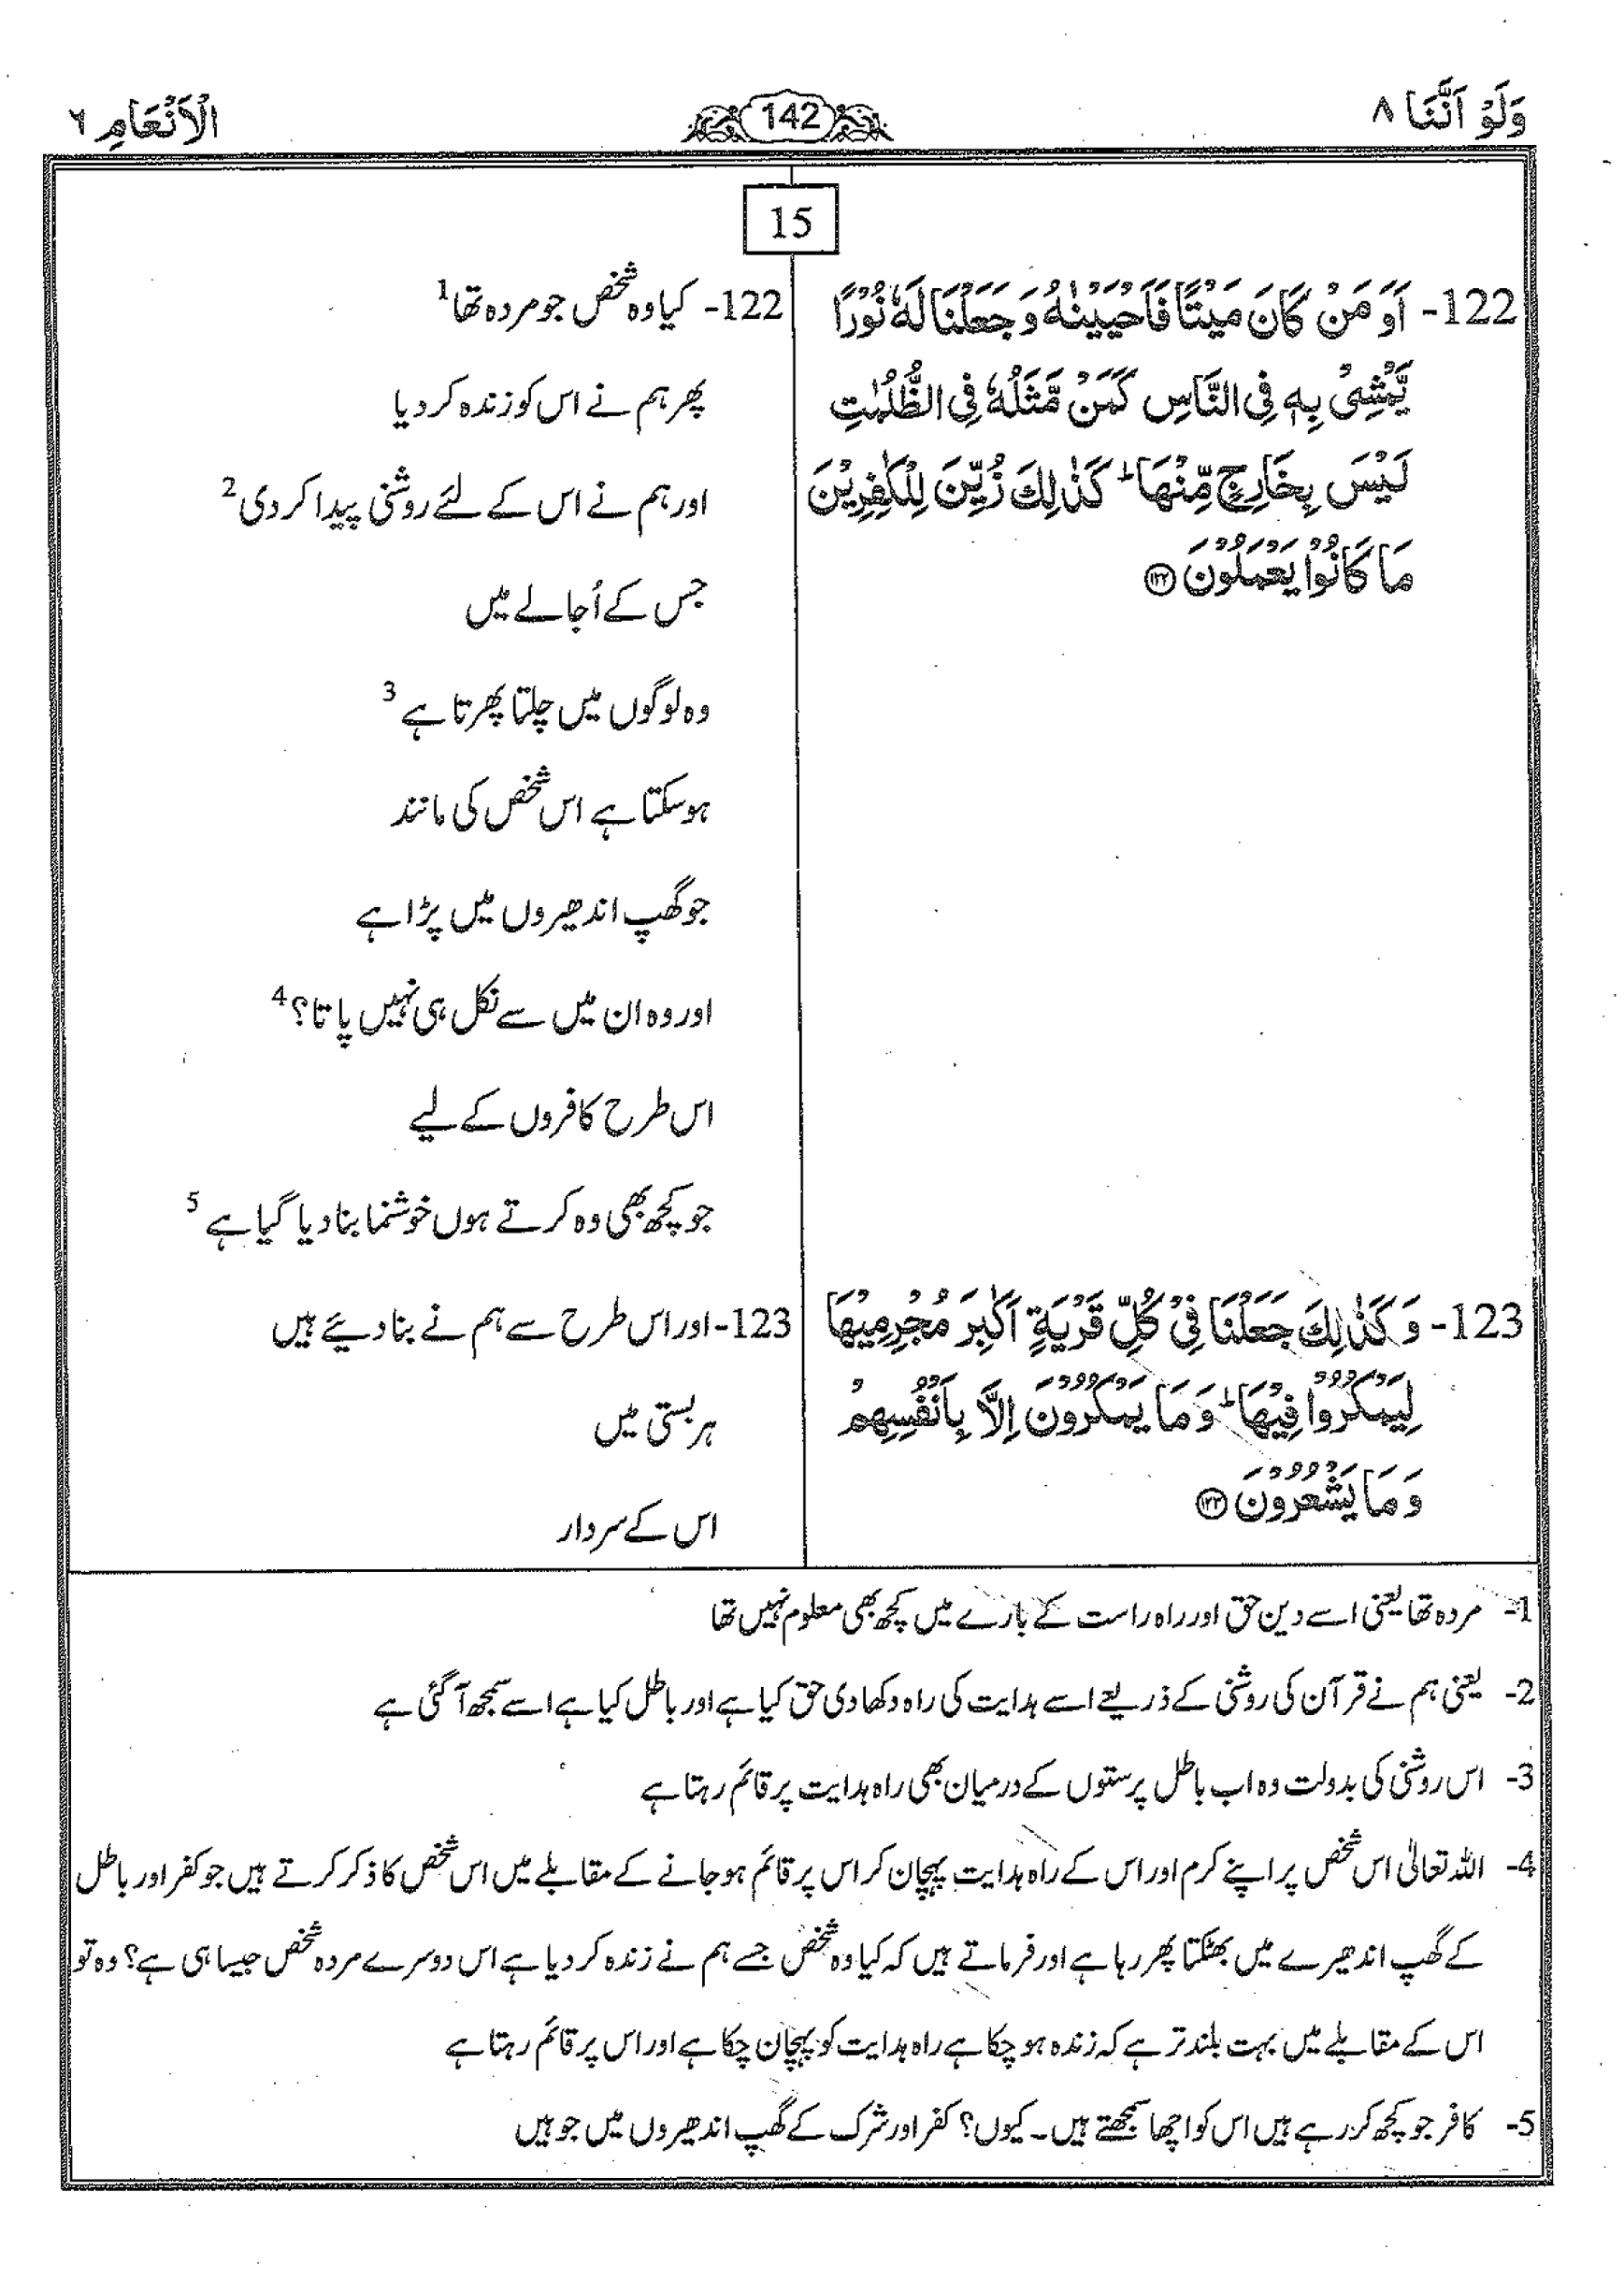 وَلَوْ اَنَّنَا ٨
142
الْاَنْعَامِ ٦
15
122- اَوَ مَنْ كَانَ مَيْتًا فَاَحْيَيْنٰهُ وَ جَعَلْنَا لَهٗ نُوْرًا
يَّمْشِىْ بِهٖ فِى النَّاسِ كَمَنْ مَّثَلُهٗ فِى الظُّلُمٰتِ
لَيْسَ بِخَارِجٍ مِّنْهَا ؕ كَذٰلِكَ زُيِّنَ لِلْكٰفِرِيْنَ
مَا كَانُوْا يَعْمَلُوْنَ ۝۱۲۲
122- کیا وہ شخص جو مردہ تھا 1
پھر ہم نے اس کو زندہ کر دیا
اور ہم نے اس کے لئے روشنی پیدا کر دی 2
جس کے اُجالے میں
وہ لوگوں میں چلتا پھرتا ہے 3
ہو سکتا ہے اس شخص کی مانند
جو گھپ اندھیروں میں پڑا ہے
اور وہ ان میں سے نکل ہی نہیں پاتا؟ 4
اس طرح کافروں کے لیے
جو کچھ بھی وہ کرتے ہوں خوشنما بنا دیا گیا ہے 5
123- وَ كَذٰلِكَ جَعَلْنَا فِىْ كُلِّ قَرْيَةٍ اَكٰبِرَ مُجْرِمِيْهَا
لِيَمْكُرُوْا فِيْهَا ؕ وَ مَا يَمْكُرُوْنَ اِلَّا بِاَنْفُسِهِمْ
وَ مَا يَشْعُرُوْنَ ۝۱۲۳
123- اور اس طرح سے ہم نے بنا دیئے ہیں
ہر بستی میں
اس کے سردار
1- مردہ تھا یعنی اسے دین حق اور راہ راست کے بارے میں کچھ بھی معلوم نہیں تھا
2- یعنی ہم نے قرآن کی روشنی کے ذریعے اسے ہدایت کی راہ دکھا دی حق کیا ہے اور باطل کیا ہے اسے سمجھ آ گئی ہے
3- اس روشنی کی بدولت وہ اب باطل پرستوں کے درمیان بھی راہ ہدایت پر قائم رہتا ہے
4- اللہ تعالیٰ اس شخص پر اپنے کرم اور اس کے راہ ہدایت پہچان کر اس پر قائم ہو جانے کے مقابلے میں اس شخص کا ذکر کرتے ہیں جو کفر اور باطل
کے گھپ اندھیرے میں بھٹکتا پھر رہا ہے اور فرماتے ہیں کہ کیا وہ شخص جسے ہم نے زندہ کر دیا ہے اس دوسرے مردہ شخص جیسا ہی ہے؟ وہ تو
اس کے مقابلے میں بہت بلند تر ہے کہ زندہ ہو چکا ہے راہ ہدایت کو پہچان چکا ہے اور اس پر قائم رہتا ہے
5- کافر جو کچھ کر رہے ہیں اس کو اچھا سمجھتے ہیں۔ کیوں؟ کفر اور شرک کے گھپ اندھیروں میں جو ہیں